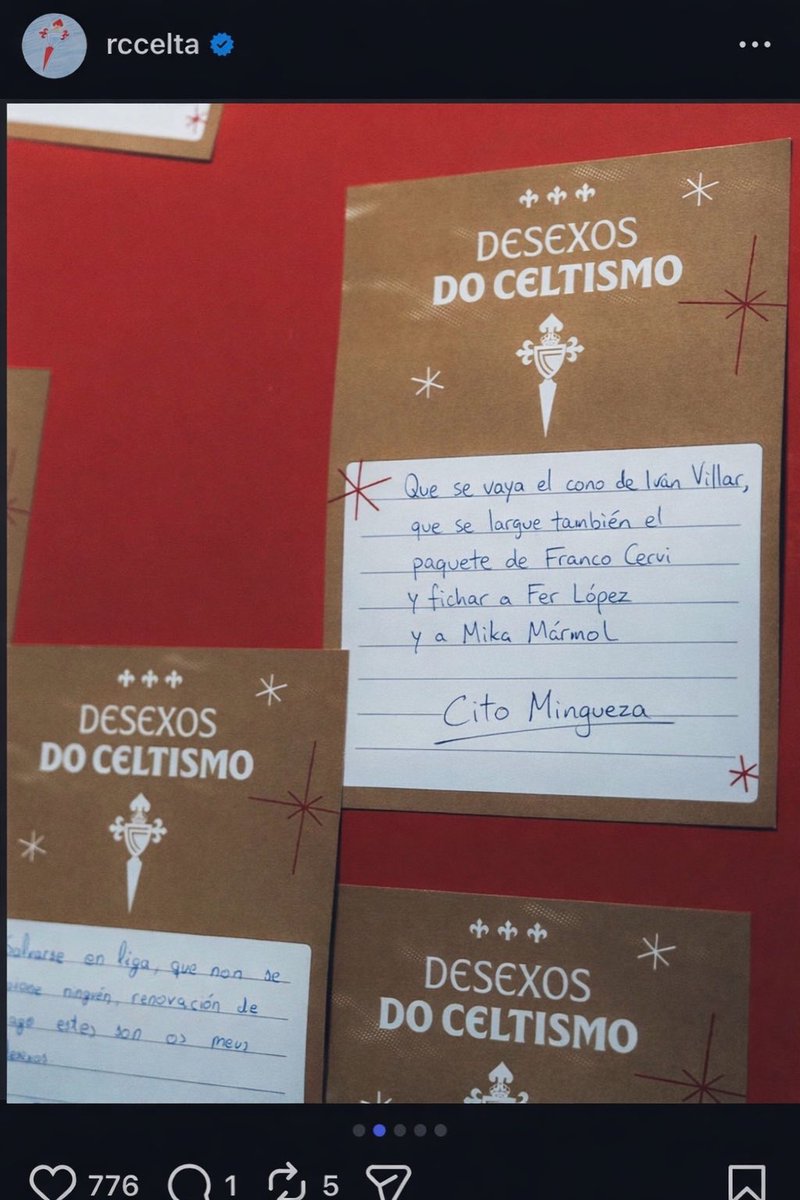 rccelta
DESEXOS
DO CELTISMO
Que se vaya el cono de Iván Villar,
que se largue también el
paquete de Franco Cervi
y fichar a Fer López
y a Mika Mármol
Cito Mingueza
DESEXOS
DO CELTISMO
en liga, que non se
ninguén, renovación de
estes son os meus
DESEXOS
DO CELTISMO
776
1
5